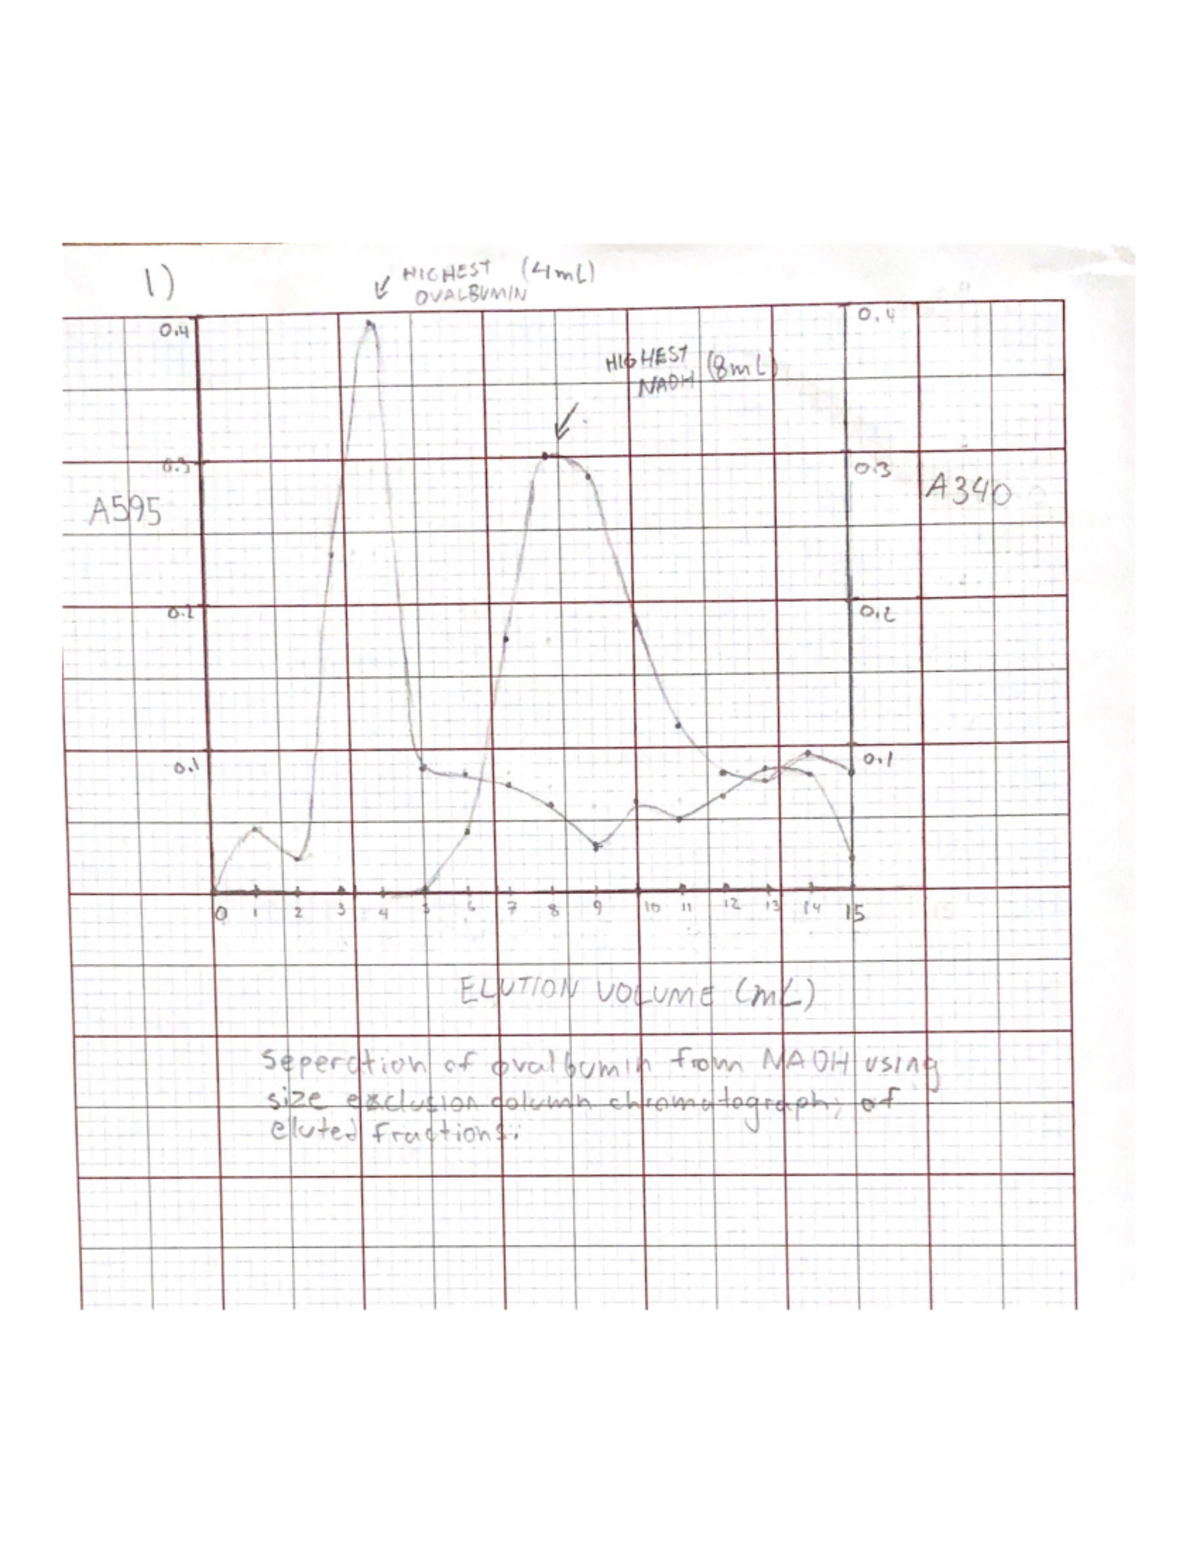 1)
HIGHEST (4mL)
OVALBUMIN
0.4
0.4
HIGHEST (8mL)
NADH
0.3
0.3
A595
A340
0.2
0.2
0.1
0.1
0 1 2 3 4 5 6 7 8 9 10 11 12 13 14 15
ELUTION VOLUME (mL)
Seperation of ovalbumin from NADH using
size exclusion column chromatography of
eluted fractions.